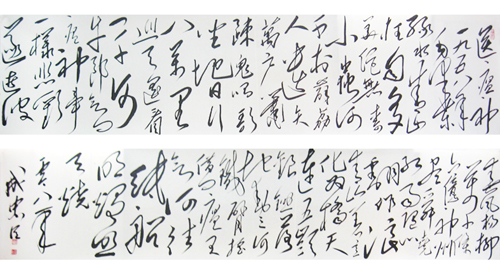 送瘟神
一九五八年
绿水青山
枉自多
华佗无奈
小虫何
千村薜荔
人遗矢
万户萧
疏鬼唱歌
坐地日行
八万里
巡天遥看
一千河
牛郎欲问
瘟神事
一样悲欢
逐逝波
春风杨柳
万千条
六亿神州
尽舜尧
红雨随心
翻作浪
青山着意
化为桥天
连五岭
银锄落
地动三河
铁臂摇
借问瘟君
欲何往
纸船
明烛照
天烧
零八年